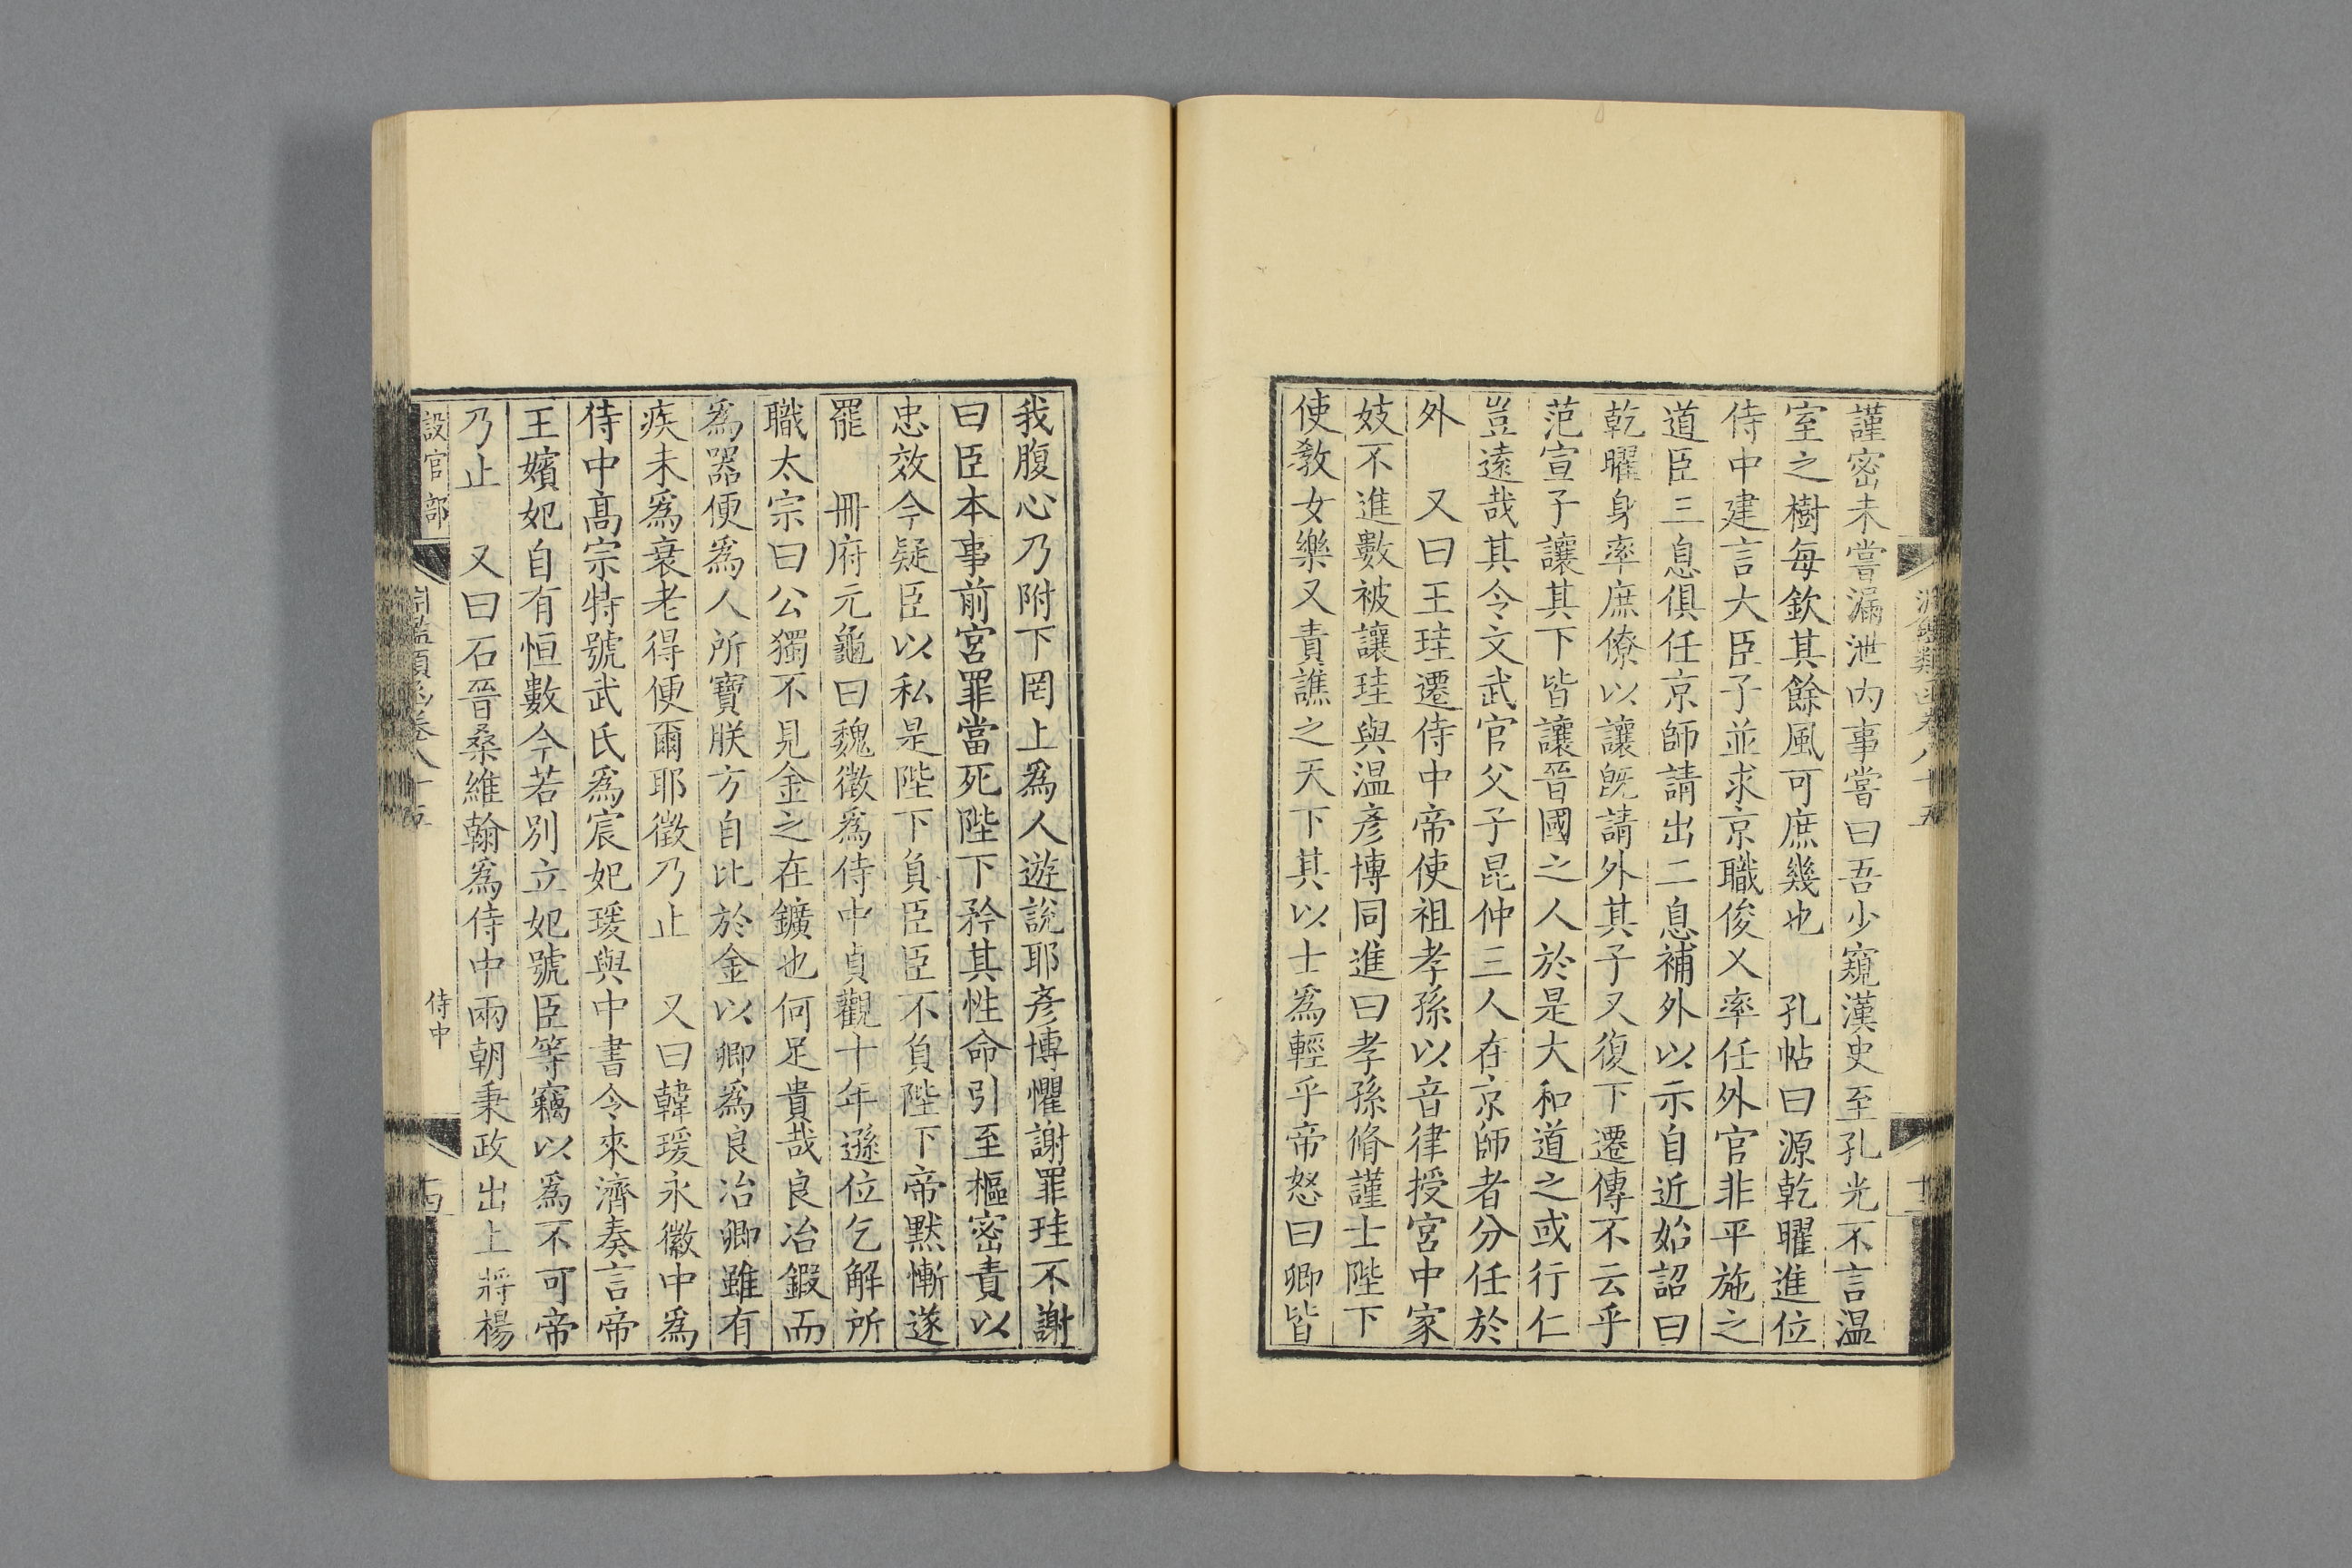 謹密未嘗漏泄內事嘗曰吾少窺漢史至孔光不言溫
室之樹每欽其餘風可庶幾也　孔帖曰源乾曜進位
侍中建言大臣子並求京職俊乂率任外官非平施之
道臣三息俱任京師請出二息補外以示自近始詔曰
乾曜身率庶僚以讓旣請外其子又復下遷傳不云乎
范宣子讓其下皆讓晉國之人於是大和道之或行仁
豈遠哉其令文武官父子昆仲三人在京師者分任於
外　又曰王珪遷侍中帝使祖孝孫以音律授宮中家
妓不進數被讓珪與温彥博同進曰孝孫脩謹士陛下
使敎女樂又責譙之天下其以士爲輕乎帝怒曰卿皆
我腹心乃附下罔上爲人遊說耶彥博懼謝罪珪不謝
曰臣本事前宮罪當死陛下矜其性命引至樞密責以
忠效今疑臣以私是陛下負臣臣不負陛下帝默慚遂
罷　冊府元龜曰魏徵爲侍中貞觀十年遜位乞解所
職太宗曰公獨不見金之在鑛也何足貴哉良冶鍜而
爲噐便爲人所寶朕方自比於金以卿爲良冶卿雖有
疾未爲衰老得便爾耶徵乃止　又曰韓瑗永徽中爲
侍中高宗特號武氏爲宸妃瑗與中書令來濟奏言帝
王嬪妃自有恒數今若別立妃號臣等竊以爲不可帝
乃止　又曰石晉桑維翰爲侍中兩朝秉政出上將楊
設官部
淵鑑類函卷八十五
侍中